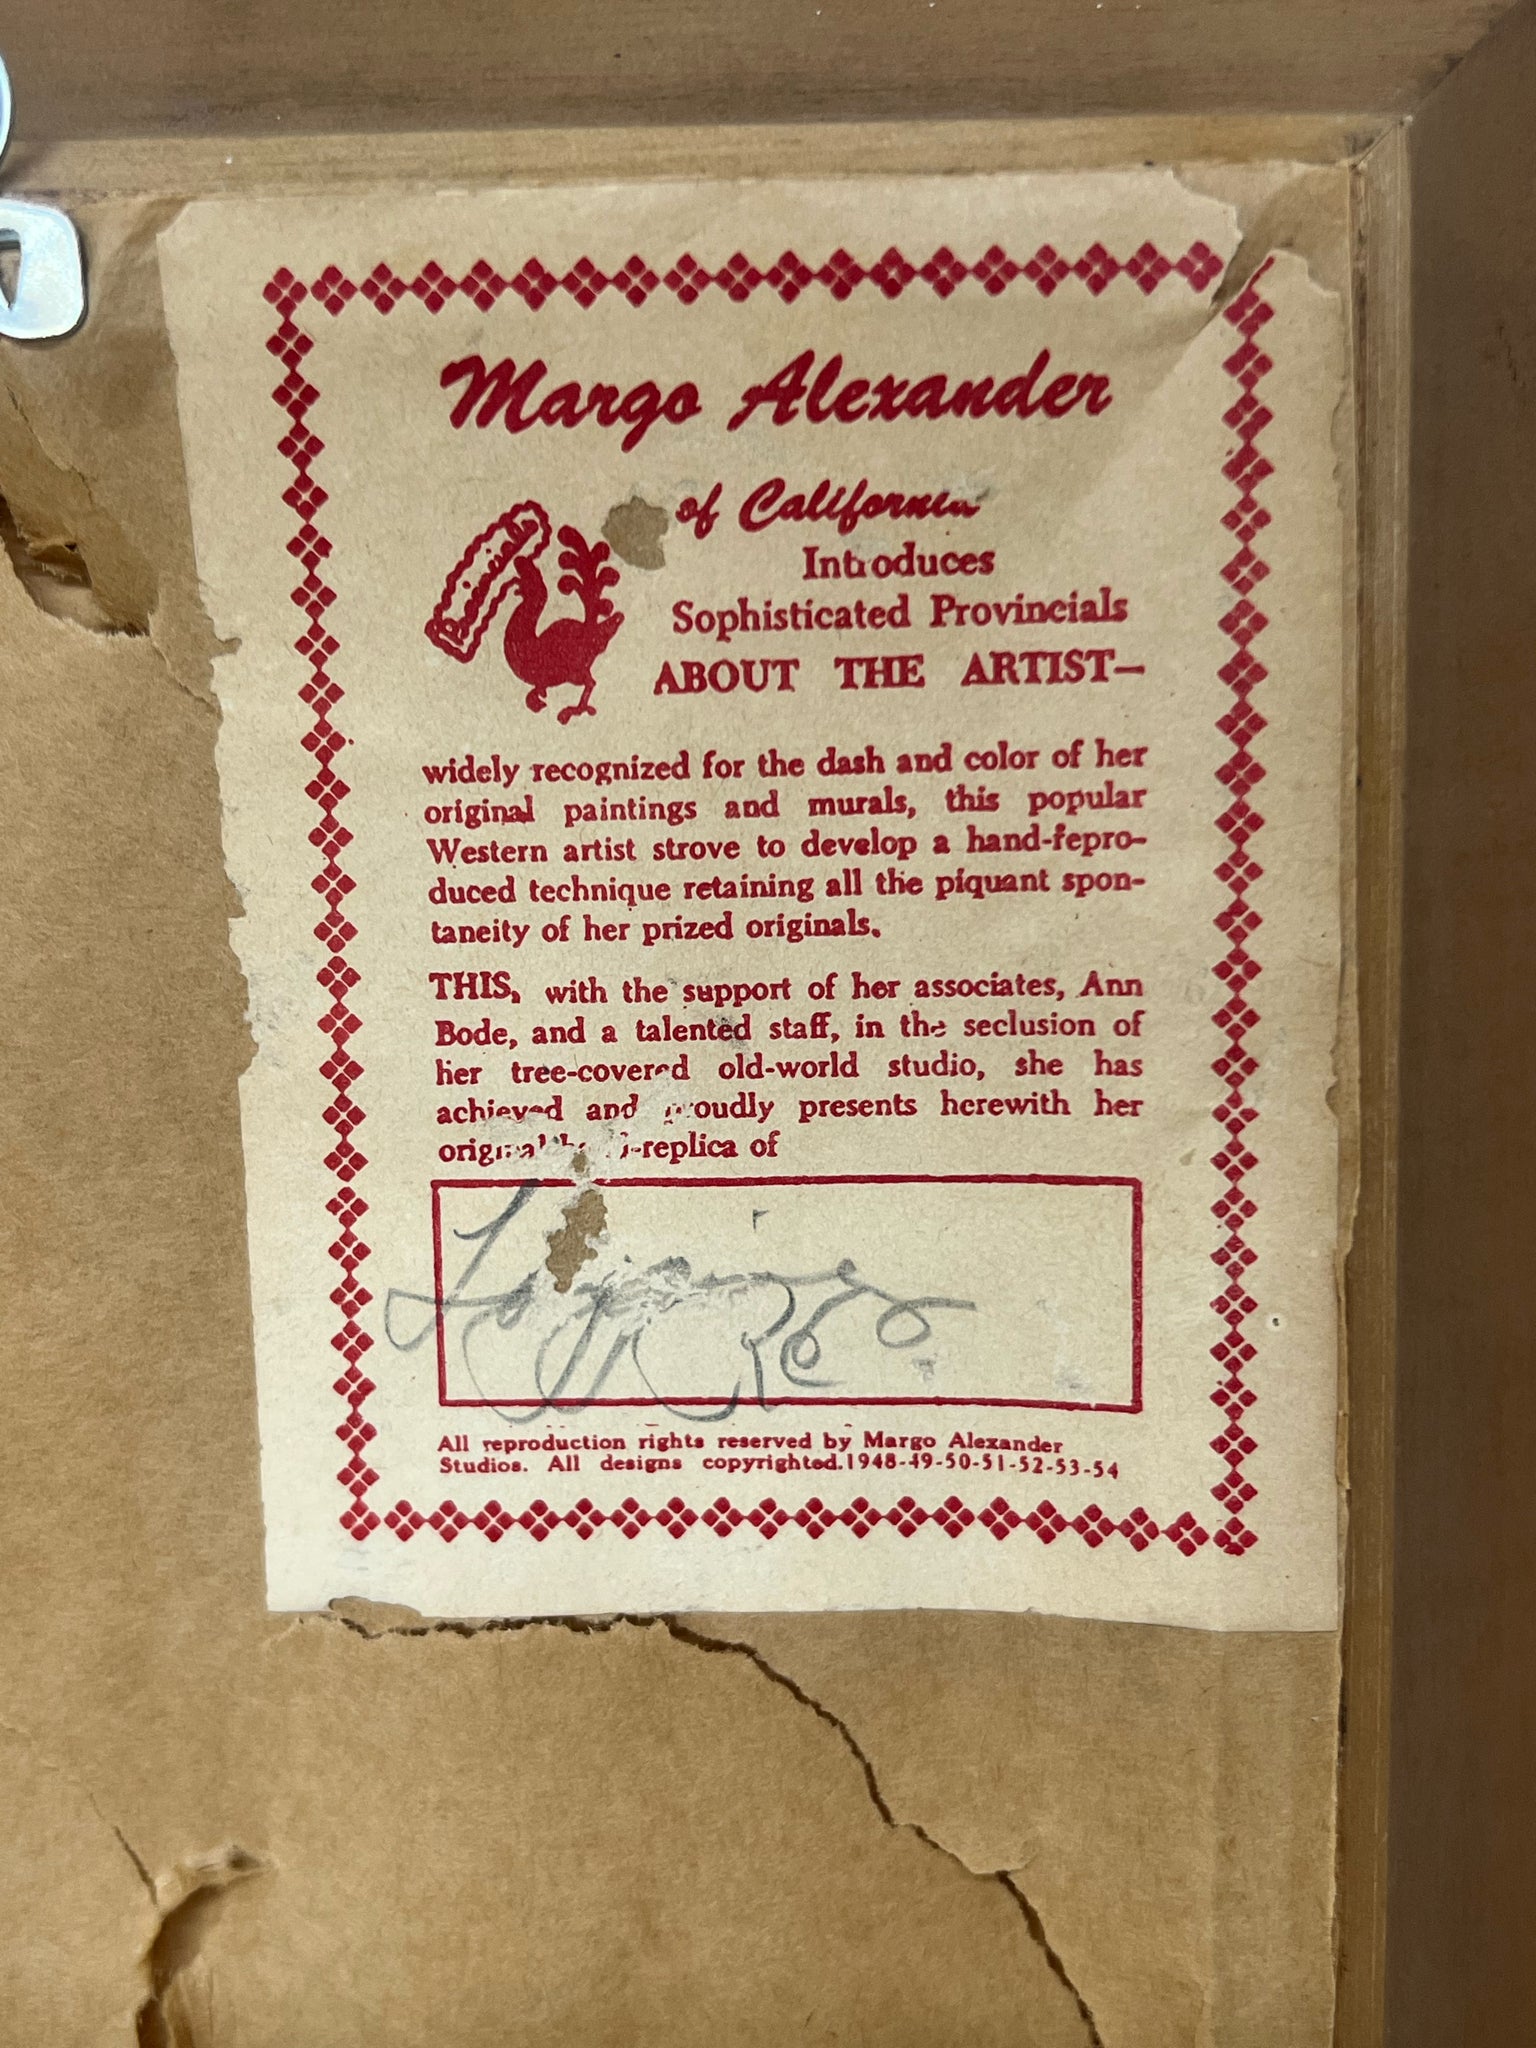 Margo Alexander
of California
Introduces
Sophisticated Provincials
ABOUT THE ARTIST—
widely recognized for the dash and color of her
original paintings and murals, this popular
Western artist strove to develop a hand-fepro-
duced technique retaining all the piquant spon-
taneity of her prized originals.
THIS, with the support of her associates, Ann
Bode, and a talented staff, in the seclusion of
her tree-covered old-world studio, she has
achieved and proudly presents herewith her
original hand-replica of
All reproduction rights reserved by Margo Alexander
Studios. All designs copyrighted.1948-49-50-51-52-53-54